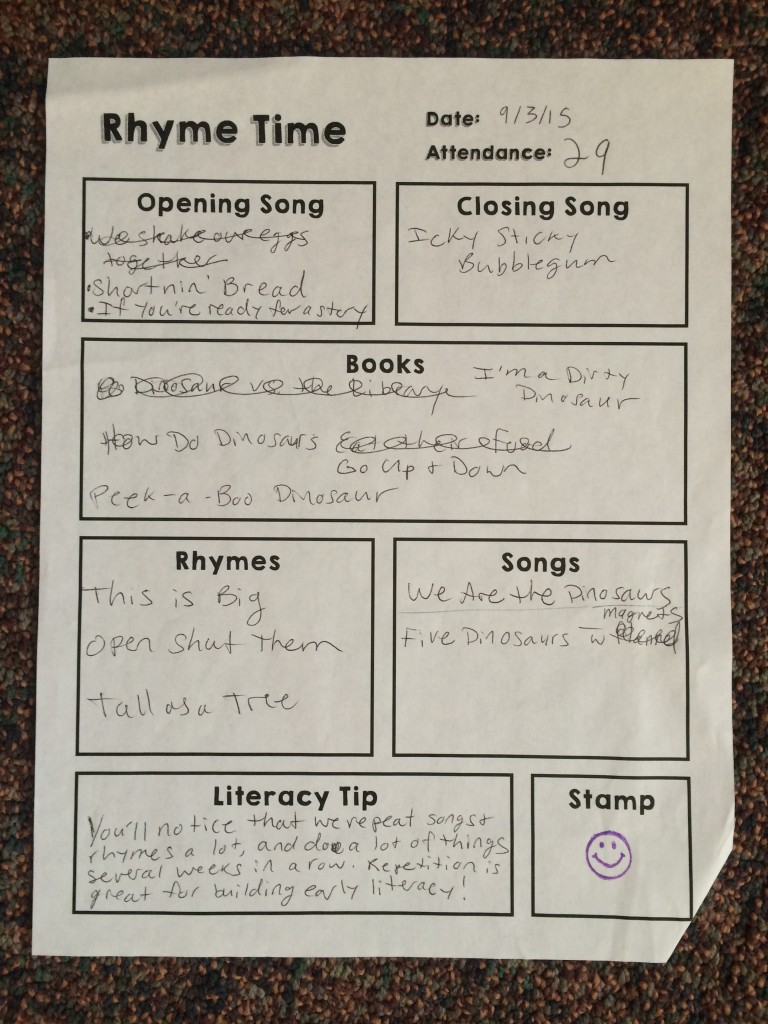 Rhyme Time
Date: 9/3/15
Attendance: 29
Opening Song
We shake our eggs
together
• Shortnin' Bread
• If you're ready for a story
Closing Song
Icky Sticky
Bubblegum
Books
Dinosaur vs the library
I'm a Dirty
Dinosaur
How Do Dinosaurs Eat their Food
Go Up + Down
Peek-a-Boo Dinosaur
Rhymes
This is Big
Open Shut Them
Tall as a Tree
Songs
We Are the Dinosaurs
magnets
Five Dinosaurs w
Literacy Tip
You'll notice that we repeat songs +
rhymes a lot, and do a lot of things
several weeks in a row. Repetition is
great for building early literacy!
Stamp